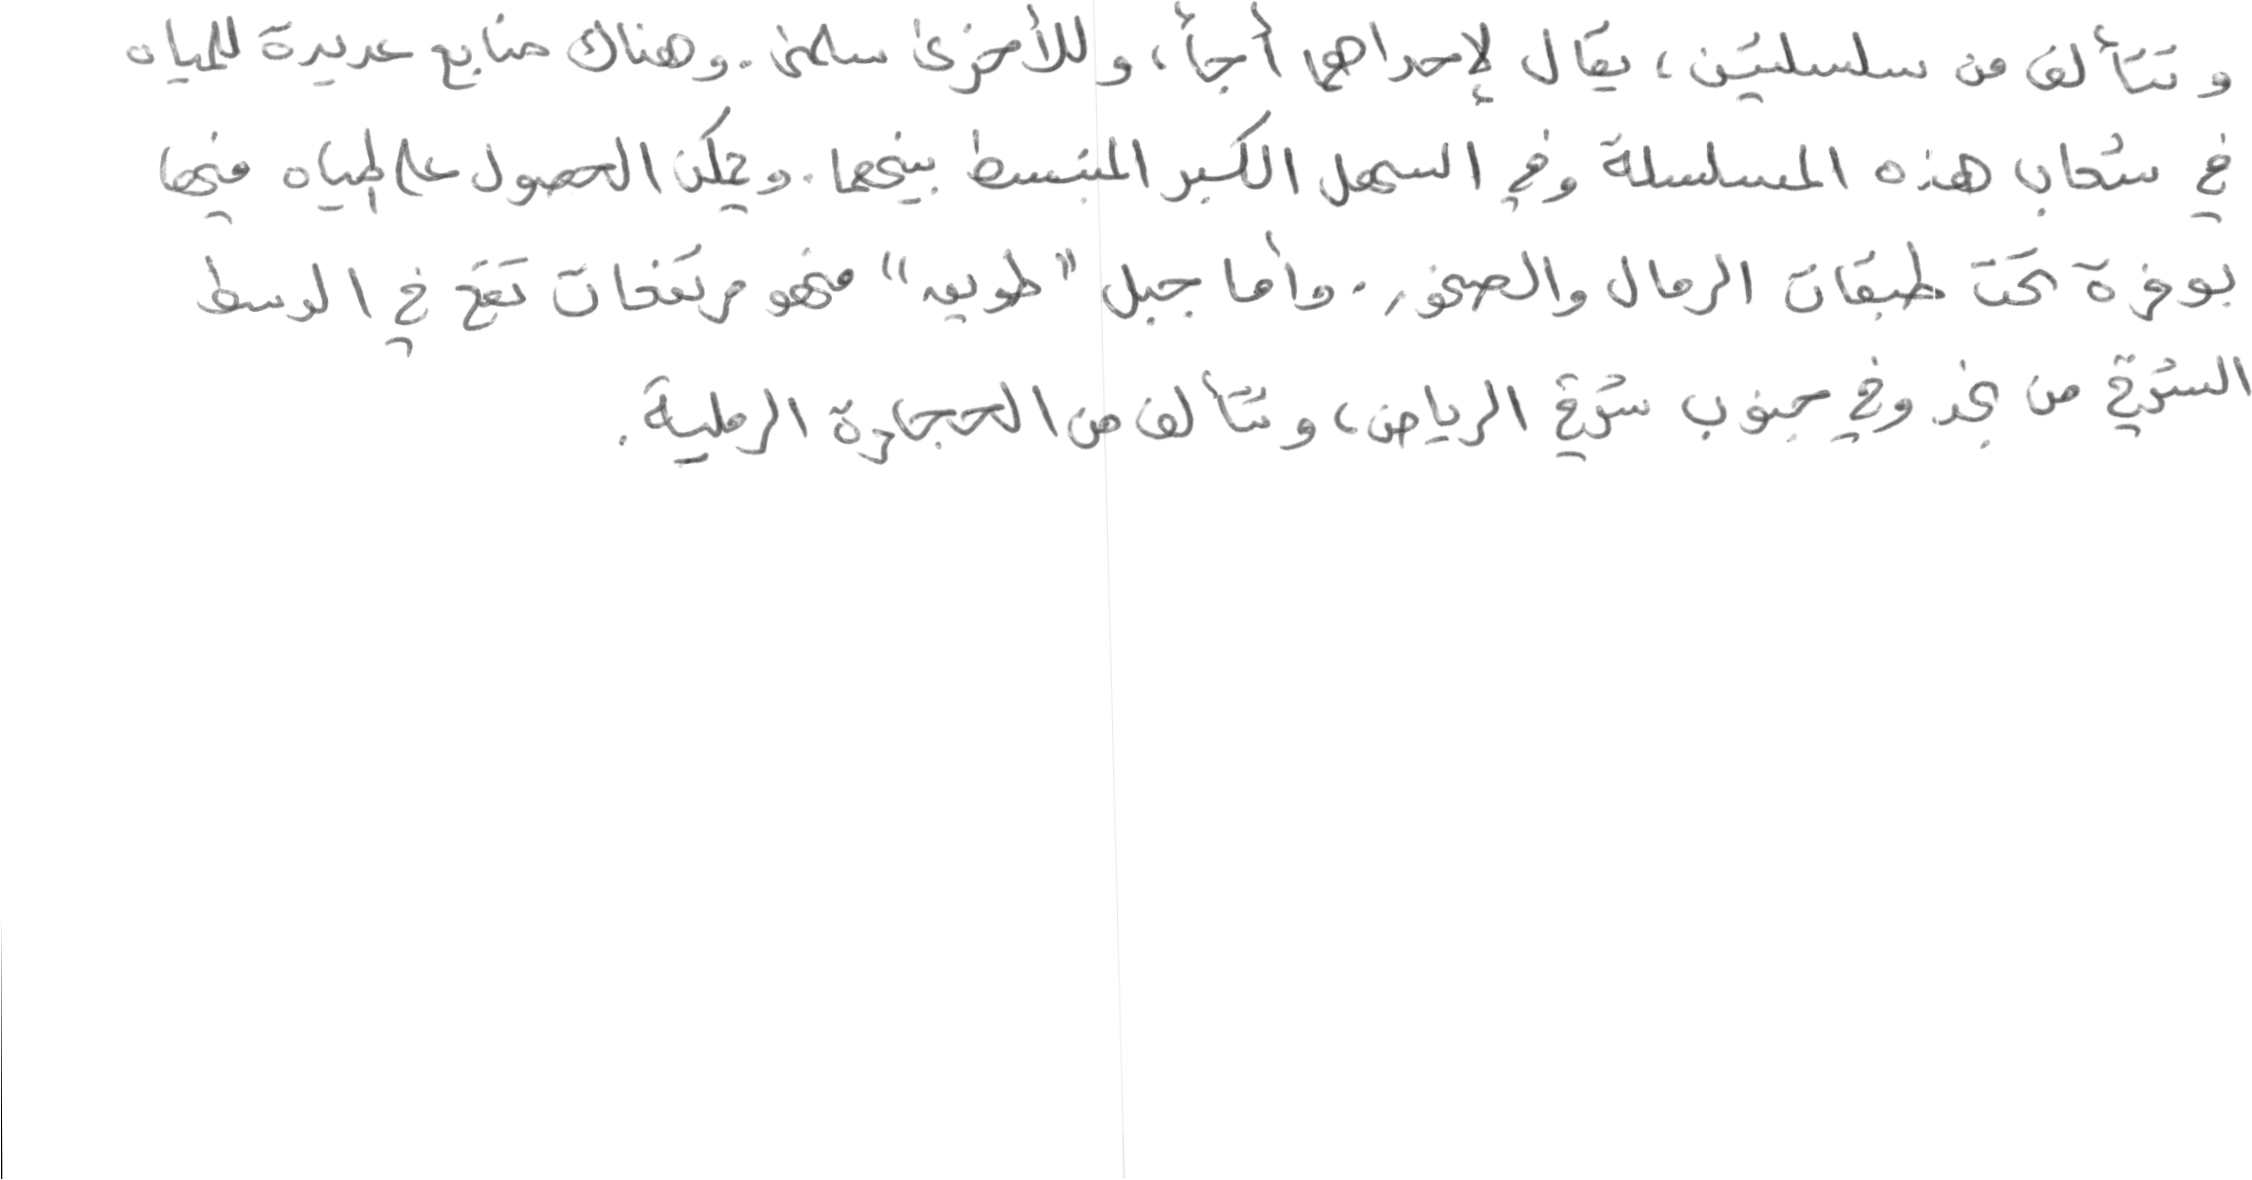 وتتألف من سلسلتين، يقال لإحداهما أجأ، وللأخرى سلمى. وهناك منابع عديدة للمياه
في شعاب هذه السلسلة وفي السهل الكبير المنبسط بينهما. ويمكن الحصول على المياه فيها
بوفرة تحت طبقات الرمال والصخور. وأما جبل "طويق" فهو مرتفعات تقع في الوسط
الشرقي من نجد وفي جنوب شرقي الرياض، وتتألف من الحجارة الرملية.